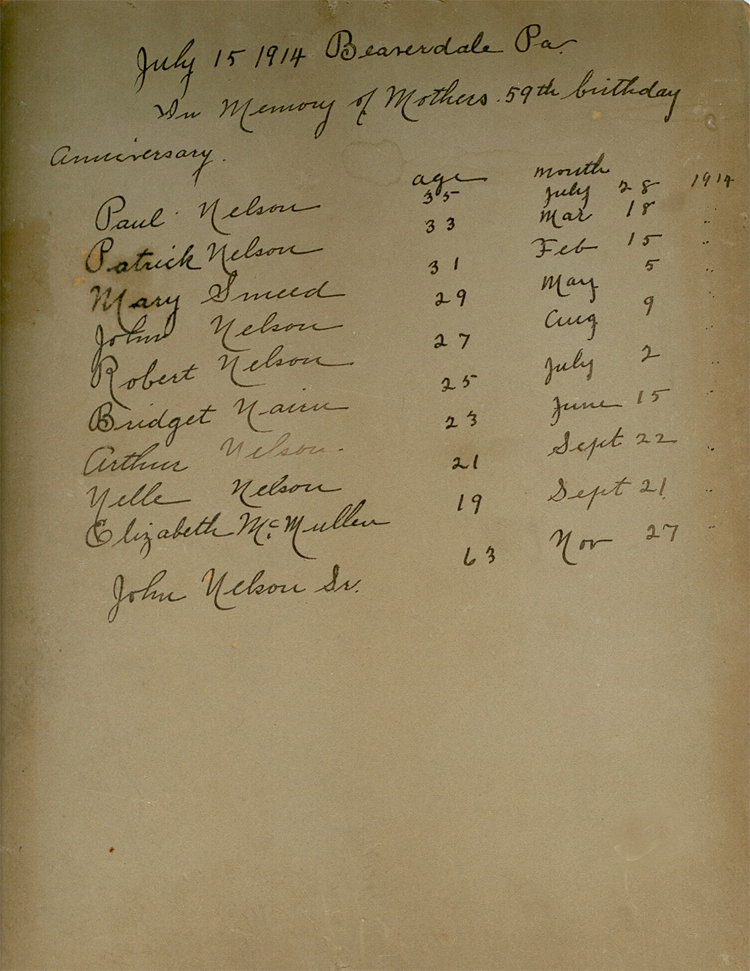 July 15 1914 Beaverdale Pa.
In Memory of Mothers 59th birthday
anniversary.
age month
Paul Nelson 35 July 28 1914
Patrick Nelson 33 Mar 18 "
Mary Smeed 31 Feb 15 "
John Nelson 29 May 5 "
Robert Nelson 27 Aug 9 "
Bridget Nairn 25 July 2 "
Arthur Nelson. 23 June 15 "
Nelle Nelson 21 Sept 22 "
Elizabeth McMullen 19 Sept 21 "
John Nelson Sr. 63 Nov 27 "